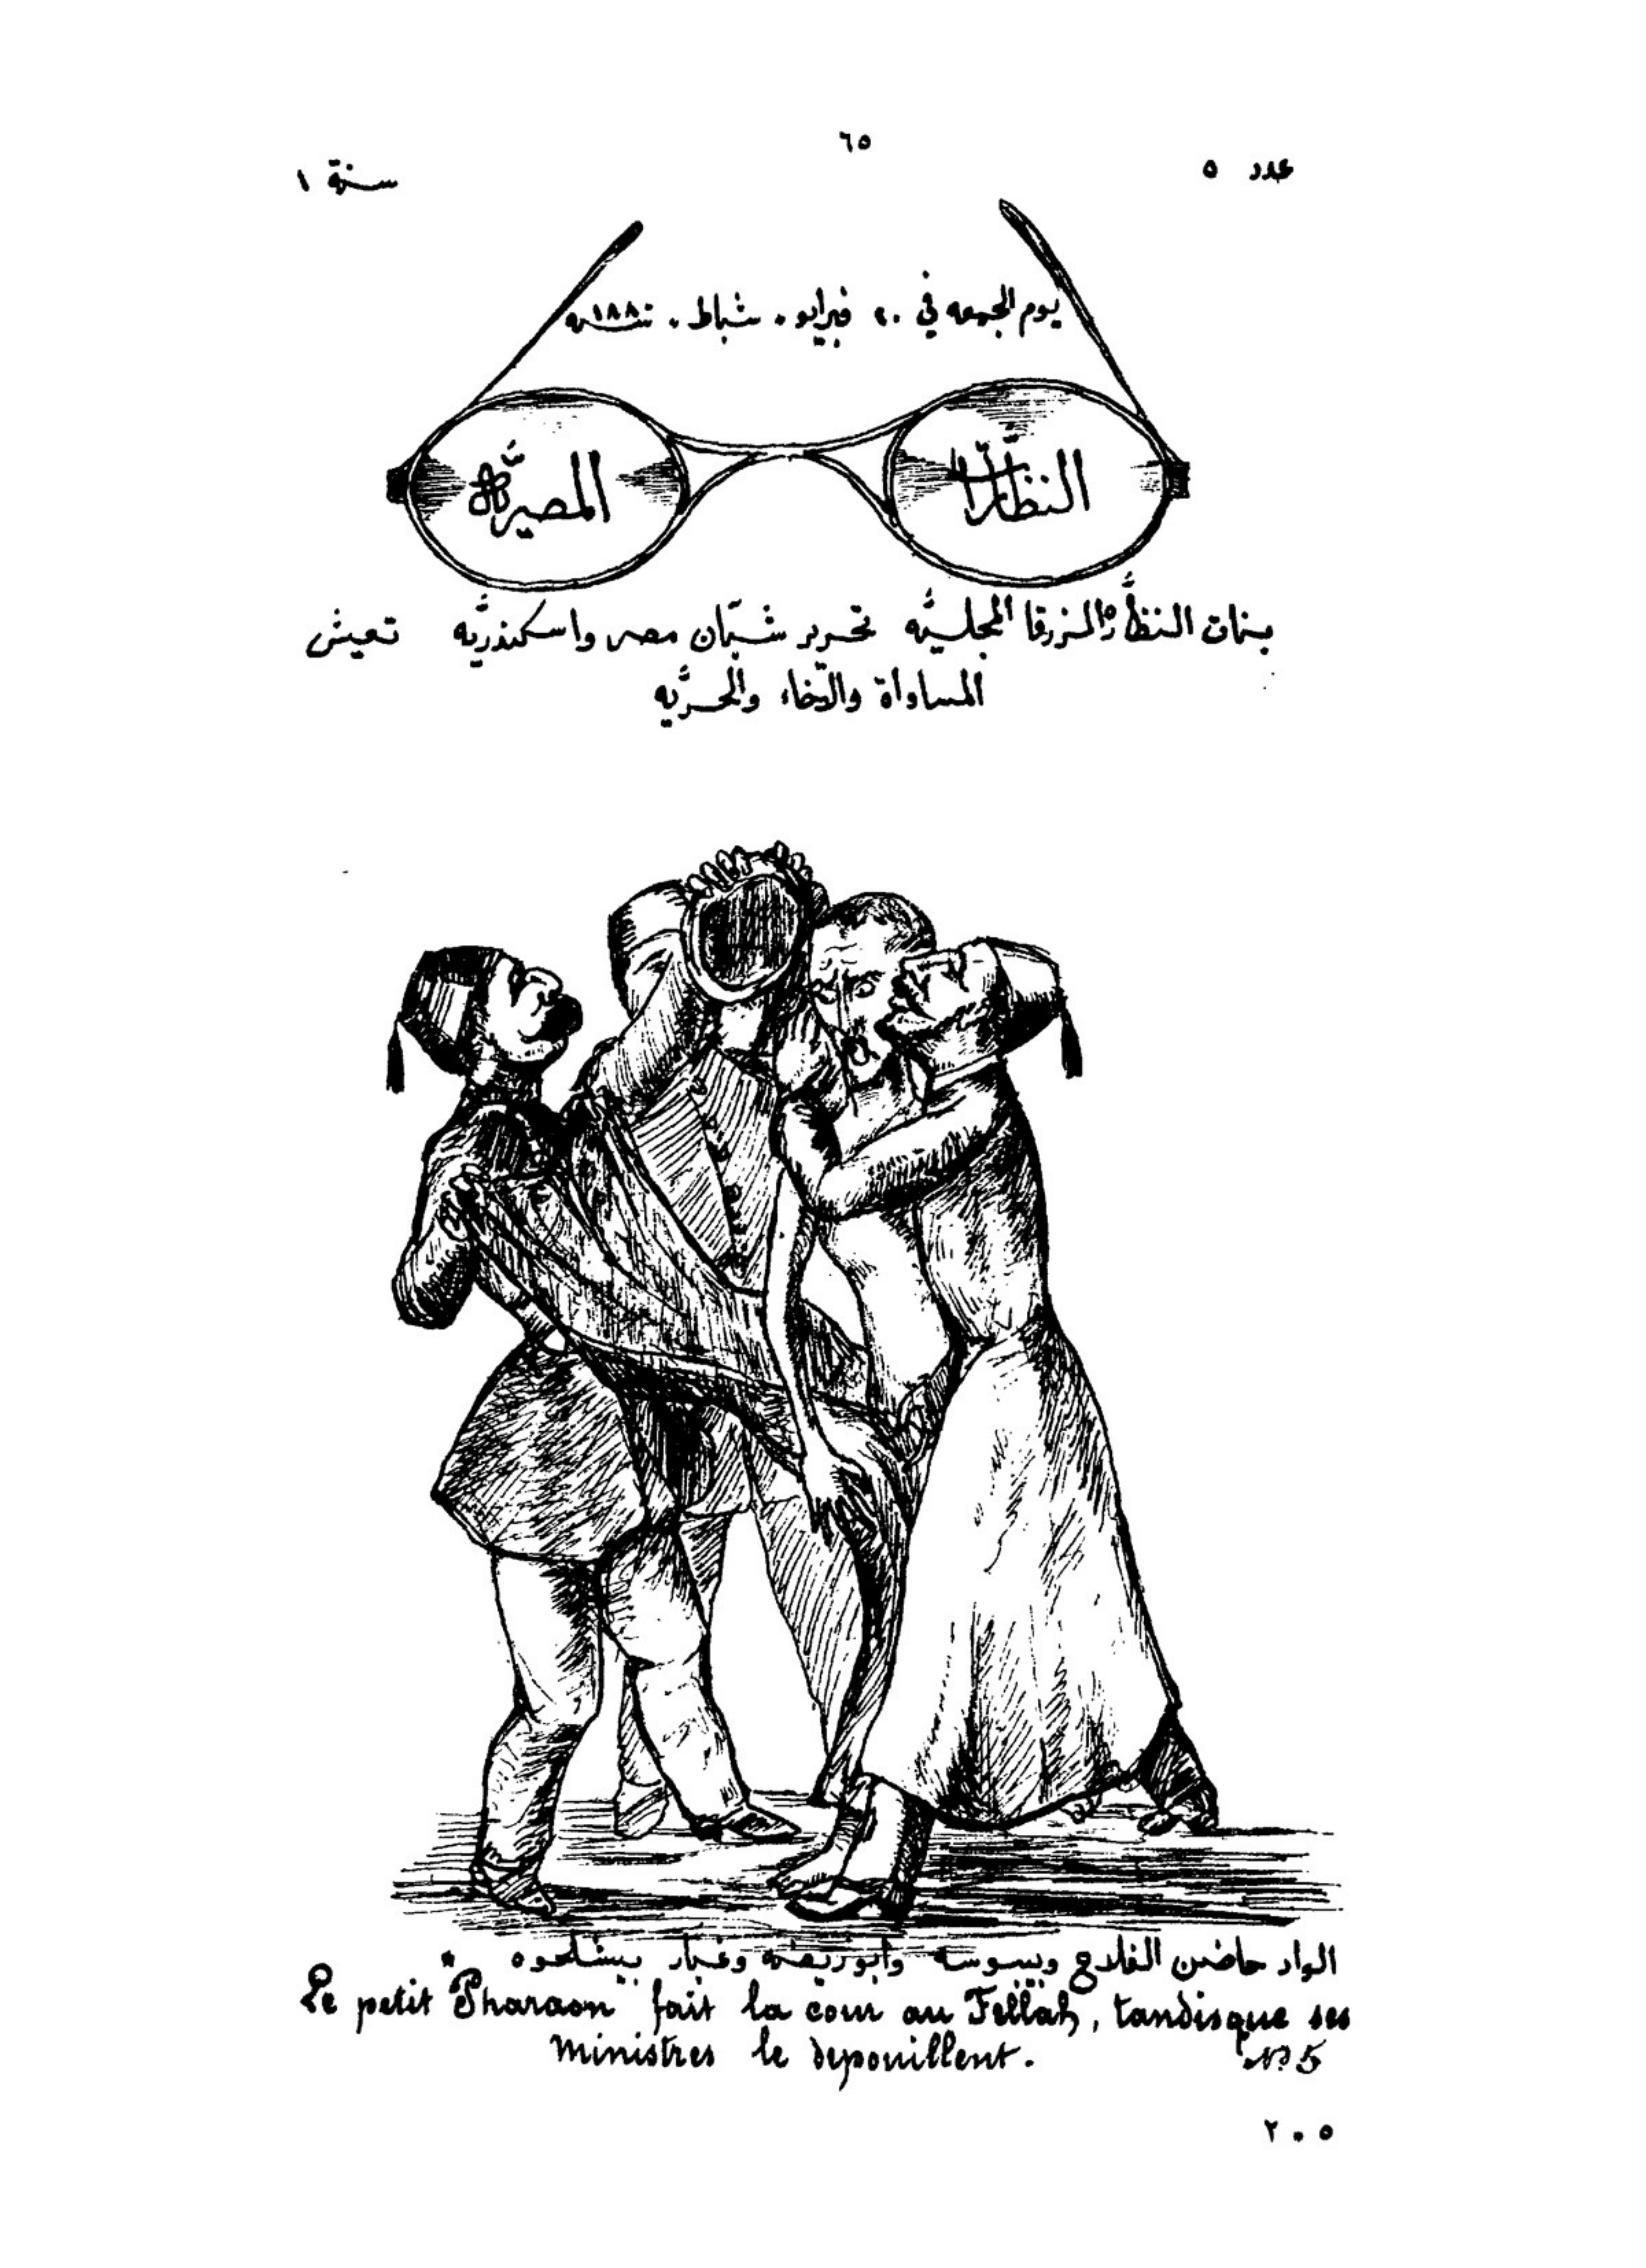 ٦٥
عدد ٥
سنة ١
يوم الجمعه في ٢٠ فبراير . شباط . سنه ١٨٨٠
النظّارات
المصريّة
بنات النظّارة الزرقا المجليّه تحرير شبّان مصر واسكندريّه تعيش
المساواة والاخاء والحرّيه
الواد حاضن الفلاح وبيبوسه وابوريضه وغبار بيشلحوه *
Le petit Pharaon fait la cour au Fellah, tandisque ses
Ministres le depouillent.
No 5
٢٠٥